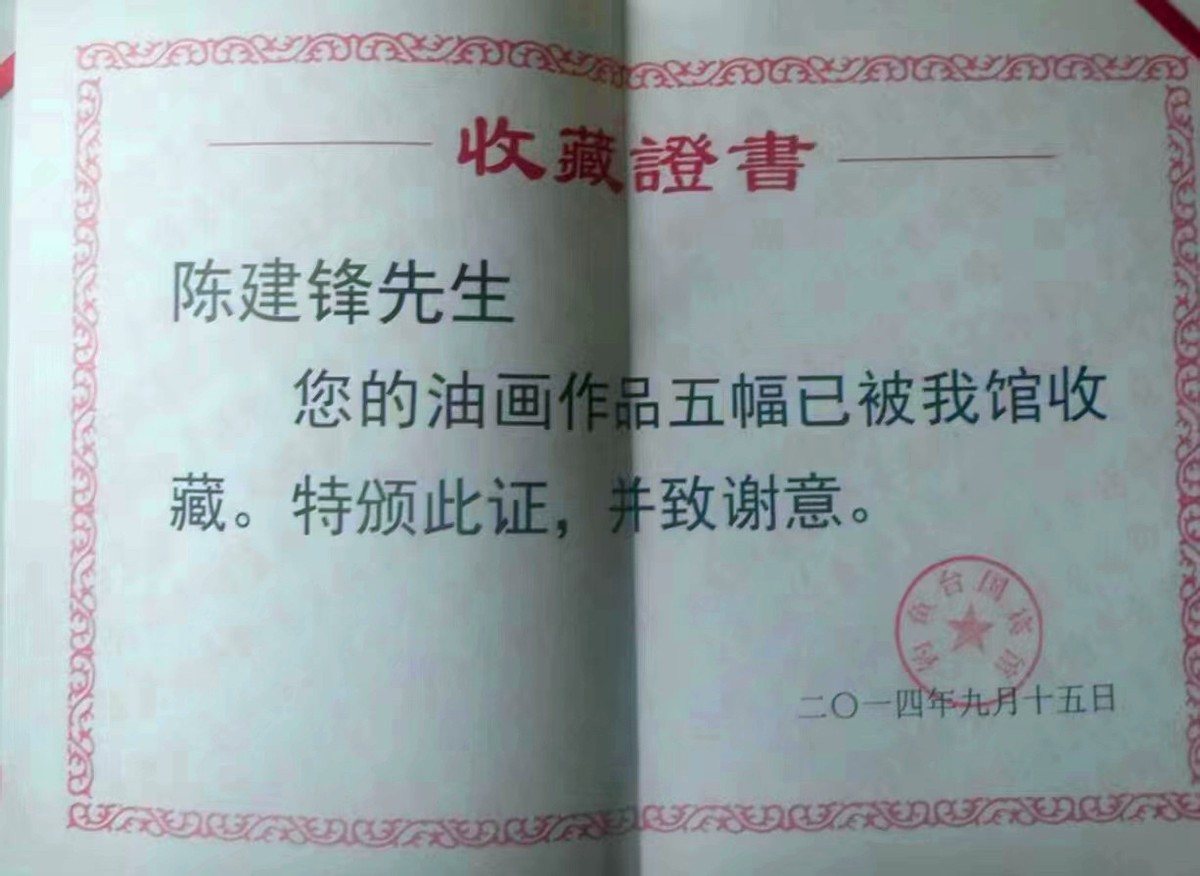 收藏證書
陈建锋先生
您的油画作品五幅已被我馆收
藏。特颁此证，并致谢意。
钓鱼台国宾馆
二〇一四年九月十五日